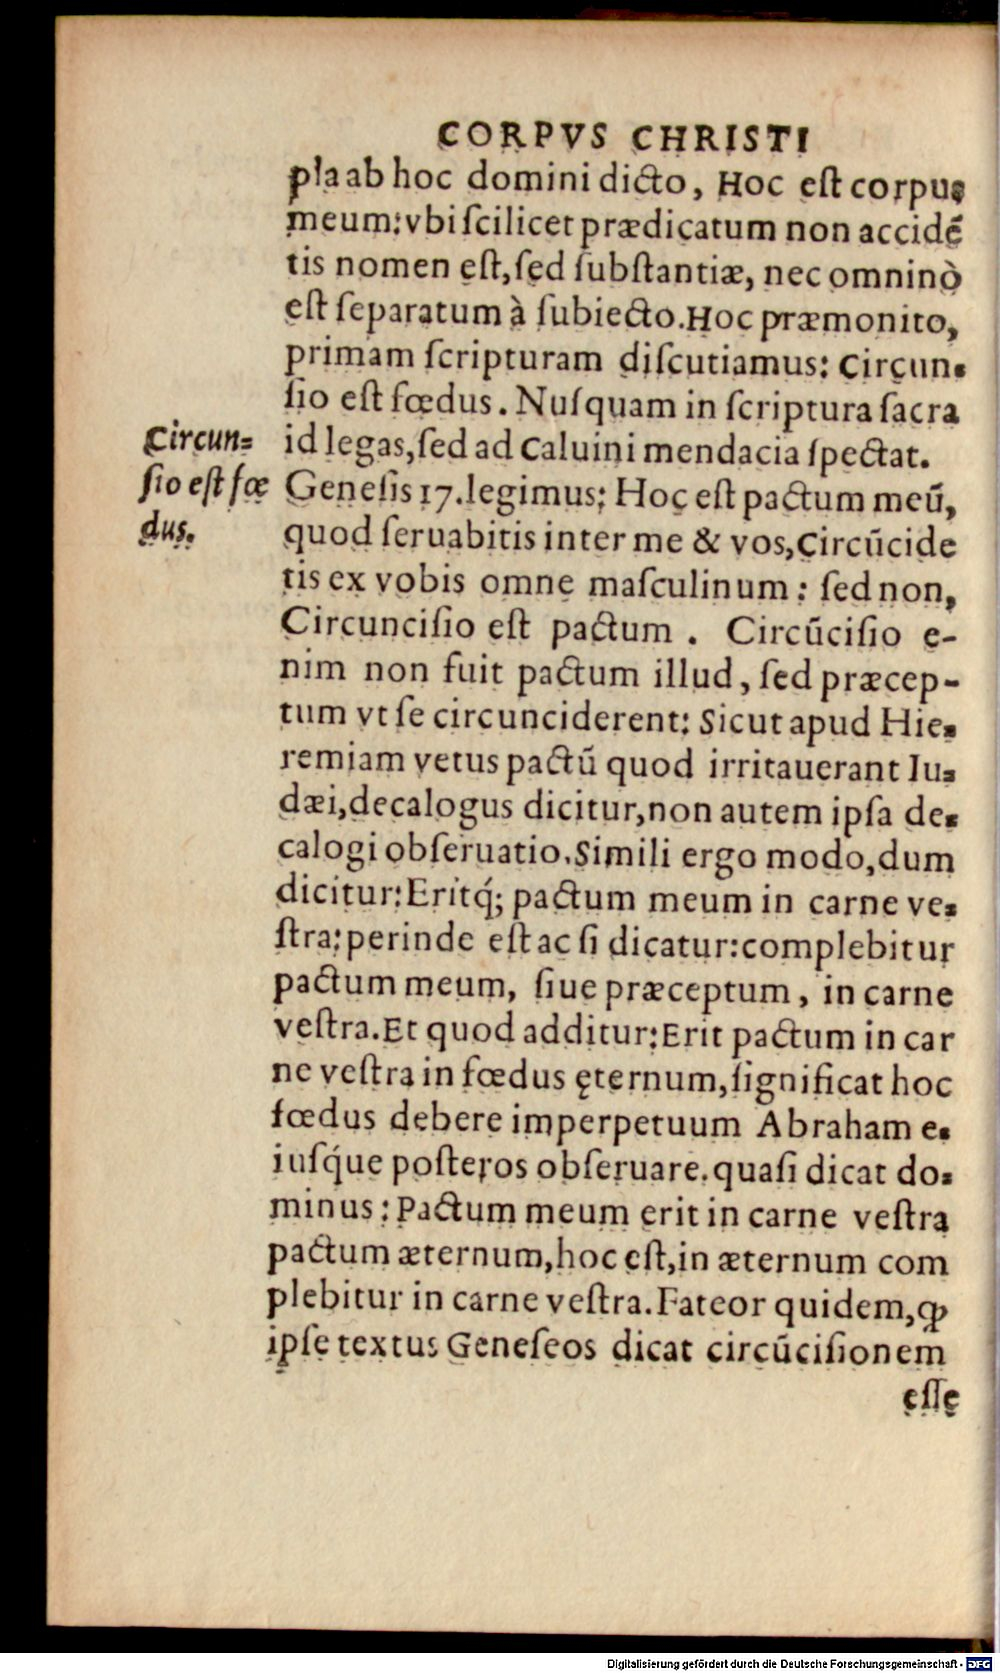 CORPVS CHRISTI
pla ab hoc domini dicto, Hoc eſt corpus
meum: vbi ſcilicet prædicatum non accidē
tis nomen eſt, ſed ſubſtantiæ, nec omninò
eſt ſeparatum à ſubiecto. Hoc præmonito,
primam ſcripturam diſcutiamus: Circun-
ſio eſt fœdus. Nuſquam in ſcriptura ſacra
id legas, ſed ad Caluini mendacia ſpectat.
Circun-
ſio eſt fœ
dus.
Geneſis 17. legimus: Hoc eſt pactum meū,
quod ſeruabitis inter me & vos, Circūcide
tis ex vobis omne maſculinum: ſed non,
Circunciſio eſt pactum. Circūciſio e-
nim non fuit pactum illud, ſed præcep-
tum vt ſe circunciderent: Sicut apud Hie-
remiam vetus pactū quod irritauerant Iu-
dæi, decalogus dicitur, non autem ipſa de-
calogi obſeruatio. Simili ergo modo, dum
dicitur: Eritq́; pactum meum in carne ve-
ſtra: perinde eſt ac ſi dicatur: complebitur
pactum meum, ſiue præceptum, in carne
veſtra. Et quod additur: Erit pactum in car
ne veſtra in fœdus ęternum, ſignificat hoc
fœdus debere imperpetuum Abraham e-
iuſq́ue poſteros obſeruare. quaſi dicat do-
minus: Pactum meum erit in carne veſtra
pactum æternum, hoc eſt, in æternum com
plebitur in carne veſtra. Fateor quidem, ꝙ
ipſe textus Geneſeos dicat circūciſionem
eſſe
Digitalisierung gefördert durch die Deutsche Forschungsgemeinschaft - DFG